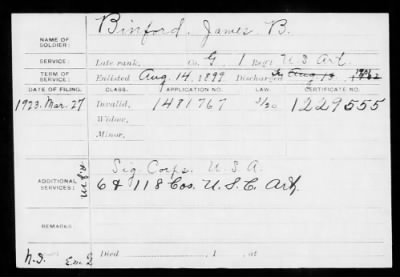 NAME OF SOLDIER: Binford, James B.
SERVICE: Late rank, Co. G, 1 Regt U.S. Art.
TERM OF SERVICE: Enlisted Aug. 14, 1899 Discharged Aug 13
DATE OF FILING. CLASS. APPLICATION NO. LAW. CERTIFICATE NO.
1923. Mar. 27 Invalid, 1481767 1229555
Widow,
Minor,
ADDITIONAL SERVICES: Sig. Corps. U.S.A.
6 & 118 Cos. U.S.C. Art.
REMARKS:
Died , 1 , at